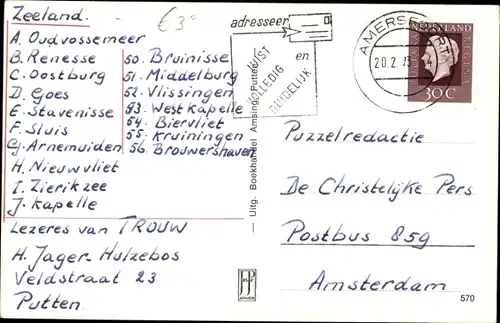 Zeeland.
€3
A. Oudvossemeer
B. Renesse
C. Oostburg
D. Goes
E. Stavenisse
F. Sluis
G. Arnemuiden
H. Nieuwvliet
I. Zierikzee
J. Kapelle
50. Bruinisse
51. Middelburg
52. Vlissingen
53. Westkapelle
54. Biervliet
55. Kruiningen
56. Brouwershaven
Lezeres van TROUW
H. Jager-Hulzebos
Veldstraat 23
Putten
adresseer
JUIST
VOLLEDIG
en
DUIDELIJK
AMERSFOORT
20.2.73
NEDERLAND
JULIANA REGINA
30C
Uitg. Boekhandel Amsing, Putten
Puzzelredactie
De Christelijke Pers
Postbus 859
Amsterdam
570